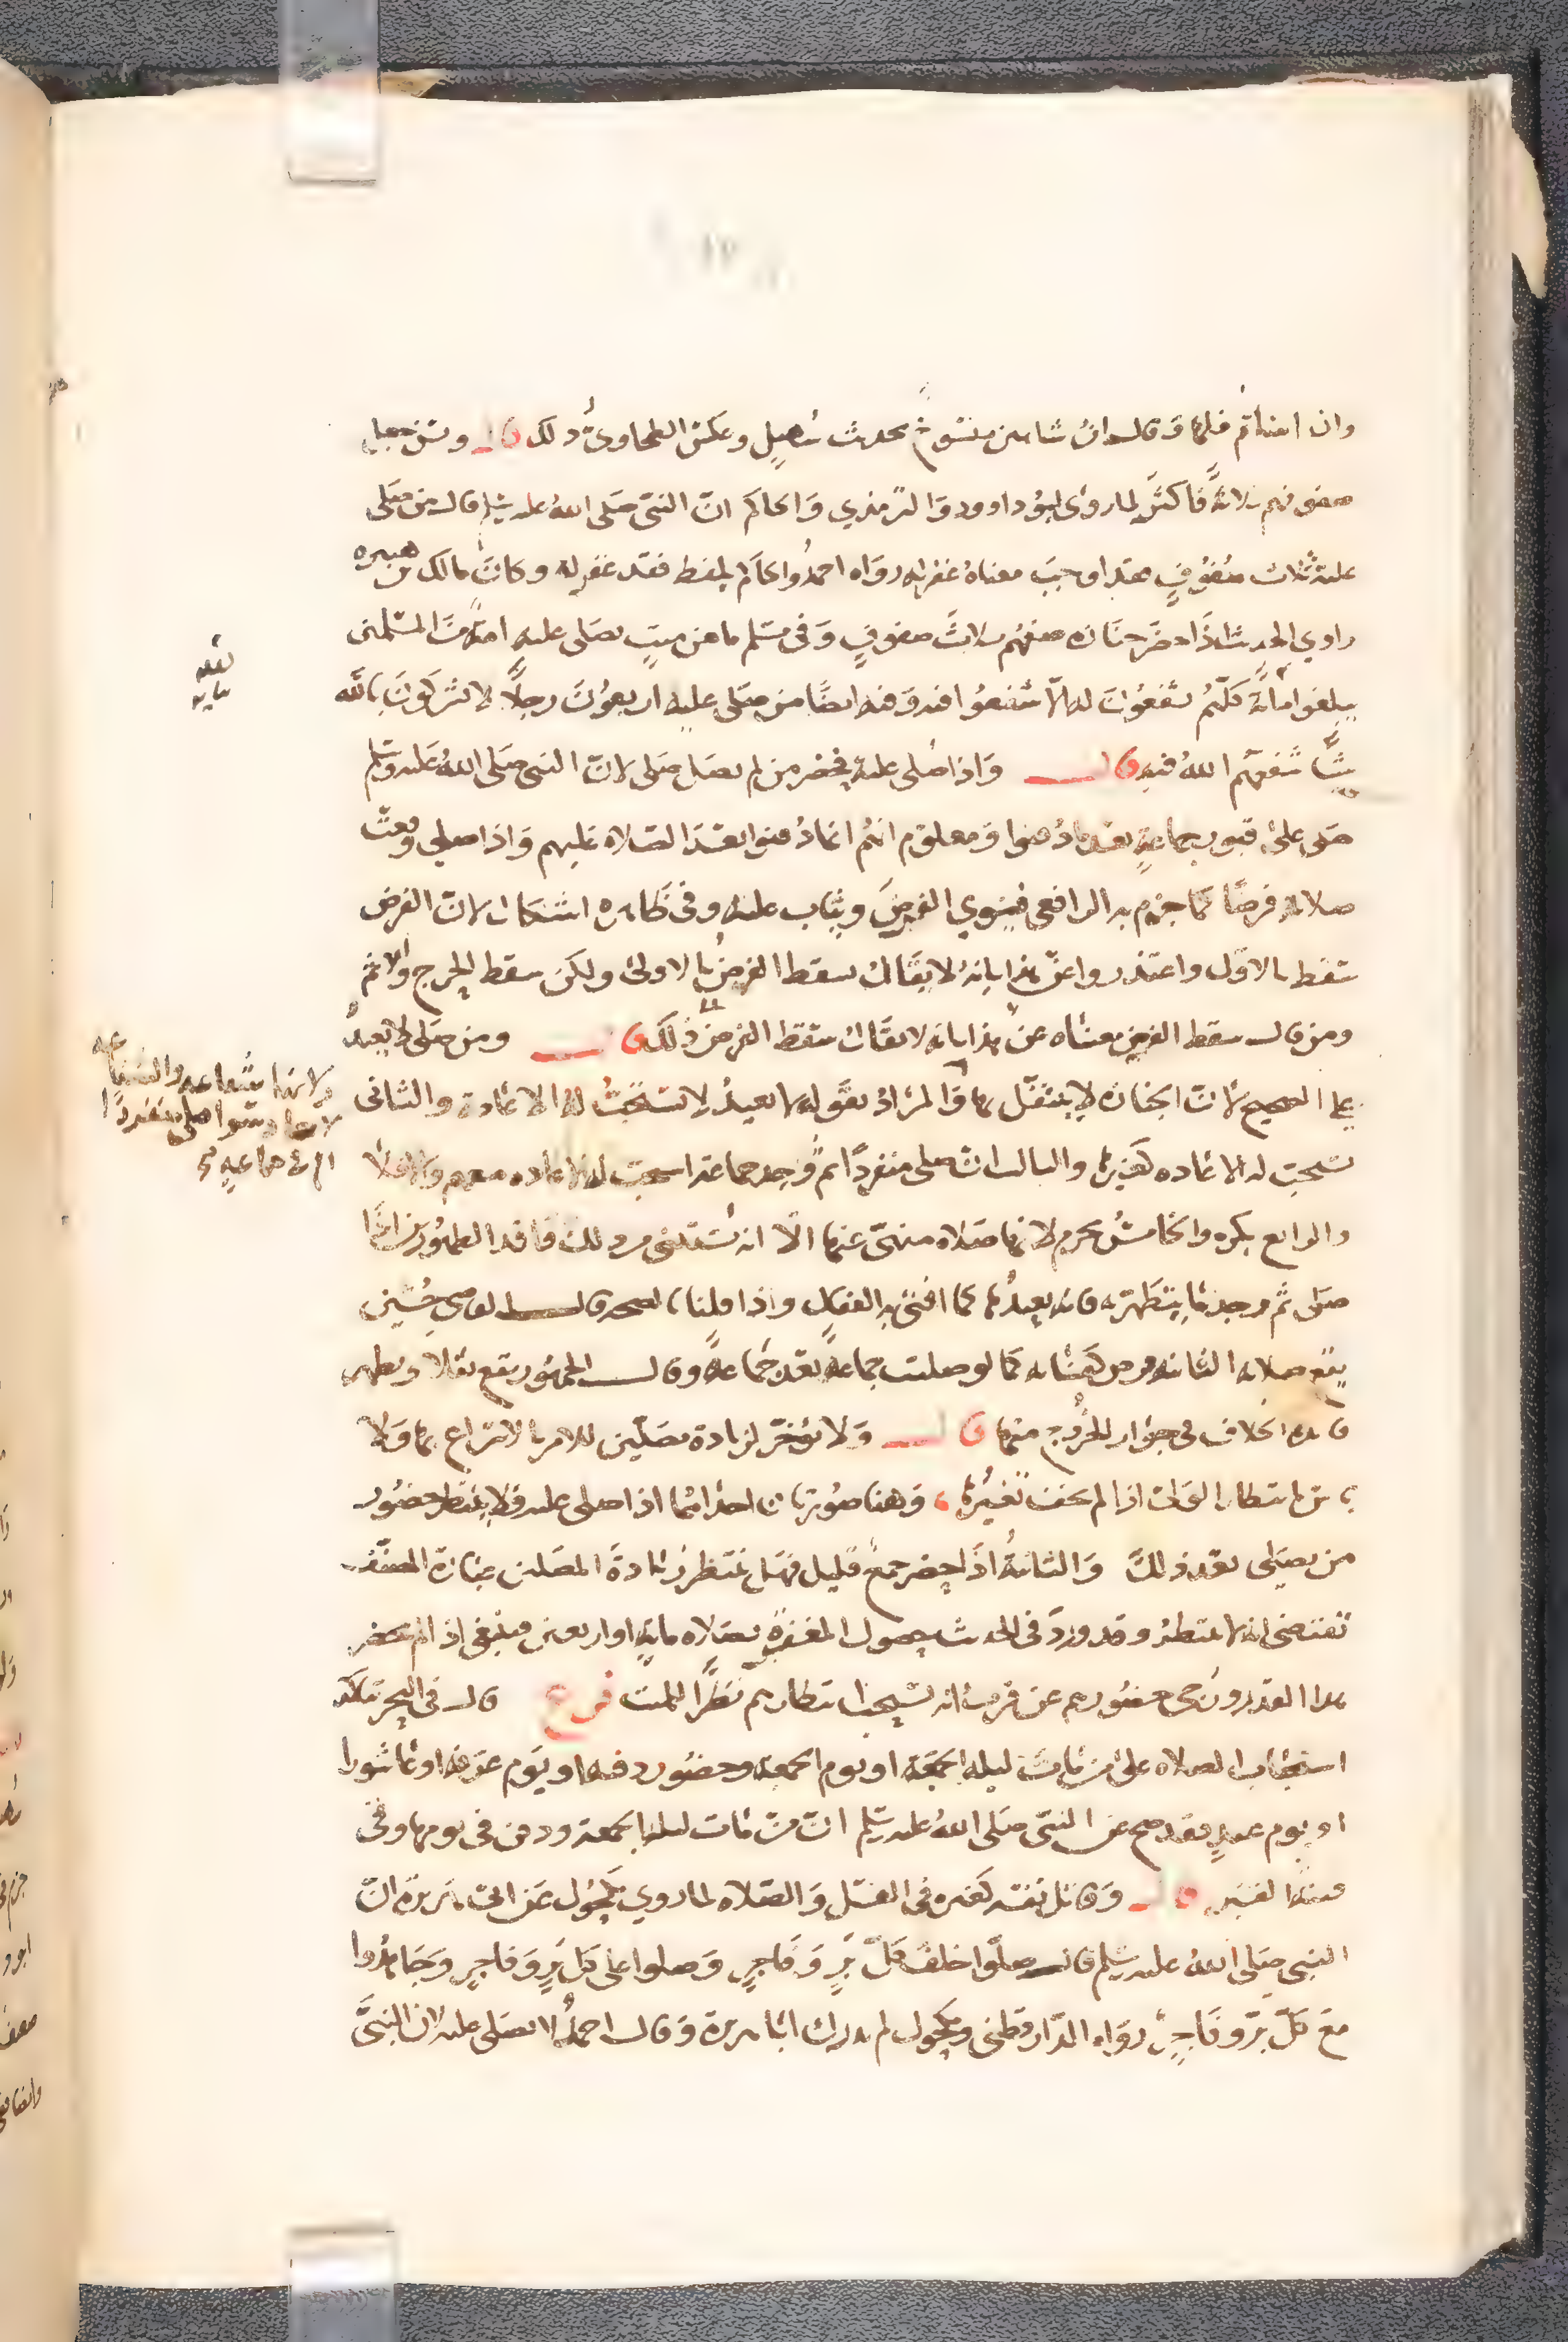 وان اعناقم فلها وقال ابن شاهين منسوخ بحديث سهيل وعكس الطحاوي ذلك قال ويسن جعل
صفوفهم ثلاثة فاكثر لما روى ابو داوود والترمذي والحاكم ان النبي صلى الله عليه وسلم قال من صلى
عليه ثلاث صفوف فقد اوجب معناه غفر له رواه احمد والحاكم بلفظ فقد غفر له وكان مالك بن هبيرة
راوي الحديث اذا حضر جنازه صفهم ثلاث صفوف وفي مسلم ما من ميت يصلي عليه امة من المسلمين
يبلغوا مأة كلهم يشفعون له الا شفعوا فيه وفيه ايضا من صلى عليه اربعون رجلا لا يشركون بالله
شيئا شفعهم الله فيه قال واذا صلي عليه فحضر من لم يصل صلى لان النبي صلى الله عليه وسلم
صلى على قبور جماعة بعد ما دفنوا ومعلوم انهم انما دفنوا بعد الصلاه عليهم واذا صلى وقعت
صلاته فرضا كما جزم به الرافعي فينوي الفرض ويثاب عليه وفي ظاهره اشكال لان الفرض
سقط بالاول واعتذروا عن هذا بانه لا يقال سقط الفرض بالاولى ولكن سقط الحرج والاثم
ومن قال سقط الفرض معناه عن هذا بانه لا يقال سقط الفرض ذلك قال ومن صلى لا يعيد
على الصحيح لان الجنازه لا يتنفل بها والمراد بقوله لا يعيد لا تستحب له الاعادة والثاني
تستحب له الاعاده كغيرها والثالث ان صلى منفردا ثم وجد جماعة استحب له الاعاده معهم والا فلا
والرابع يكره والخامس يحرم لانها صلاه منهي عنها الا انه يستثنى من ذلك فاقد الطهورين اذا
صلى ثم وجد ما يتطهر به فانه يعيدها كما افتى به القفال واذا قلنا بالصحه قال القاضي حسين
يقع صلاته الثانيه فرض كفايه كما لو صلت جماعة بعد جماعة وقال الجمهور يقع نفلا ويظهر
فايدة الخلاف في جواز الخروج منها قال ولا تؤخر لزيادة مصلين للامر بالاسراع بها ولا
باس بانتظار الولي اذا لم يخف تغيرها، وهنا صورتان احداهما اذا صلي عليه فلا ينتظر حضور
من يصلي بعد ذلك والثانية اذا حضر جمع قليل فهل ننتظر زيادة المصلين عبارة المصنف
تقتضي انها لا تنتظر وقد ورد في الحديث حصول المغفرة بصلاه مائة او اربعين فينبغي اذا لم يحضر
هذا القدر ورجي حضورهم عن قرب انه يستحب انتظارهم نظرا للميت فرع قال في البحر يتاكد
استحباب الصلاه على من مات ليله الجمعة او يوم الجمعه وحضور دفنه او يوم عرفه او عاشورا
او يوم عيد فقد صح عن النبي صلى الله عليه وسلم ان من مات ليله الجمعه ودفن في يومها وقي
فتنة القبر قال وقاتل نفسه كغيره في الغسل والصلاه لما روي مكحول عن ابي هريرة ان
النبي صلى الله عليه وسلم قال صلوا خلف كل بر وفاجر وصلوا على كل بر وفاجر وجاهدوا
مع كل بر وفاجر رواه الدارقطني ومكحول لم يدرك ابا هريرة وقال احمد لا يصلى عليه لان النبي
ولانها شفاعه والشفاعه
لا تعاد سوا صلى منفردا
ام في جماعه